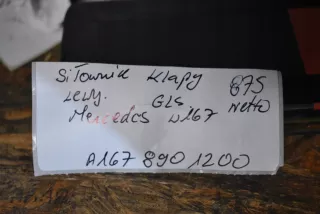 Siłownik Klapy 875
Lewy. GLS Netto
Mercedes W167
A167 890 1200